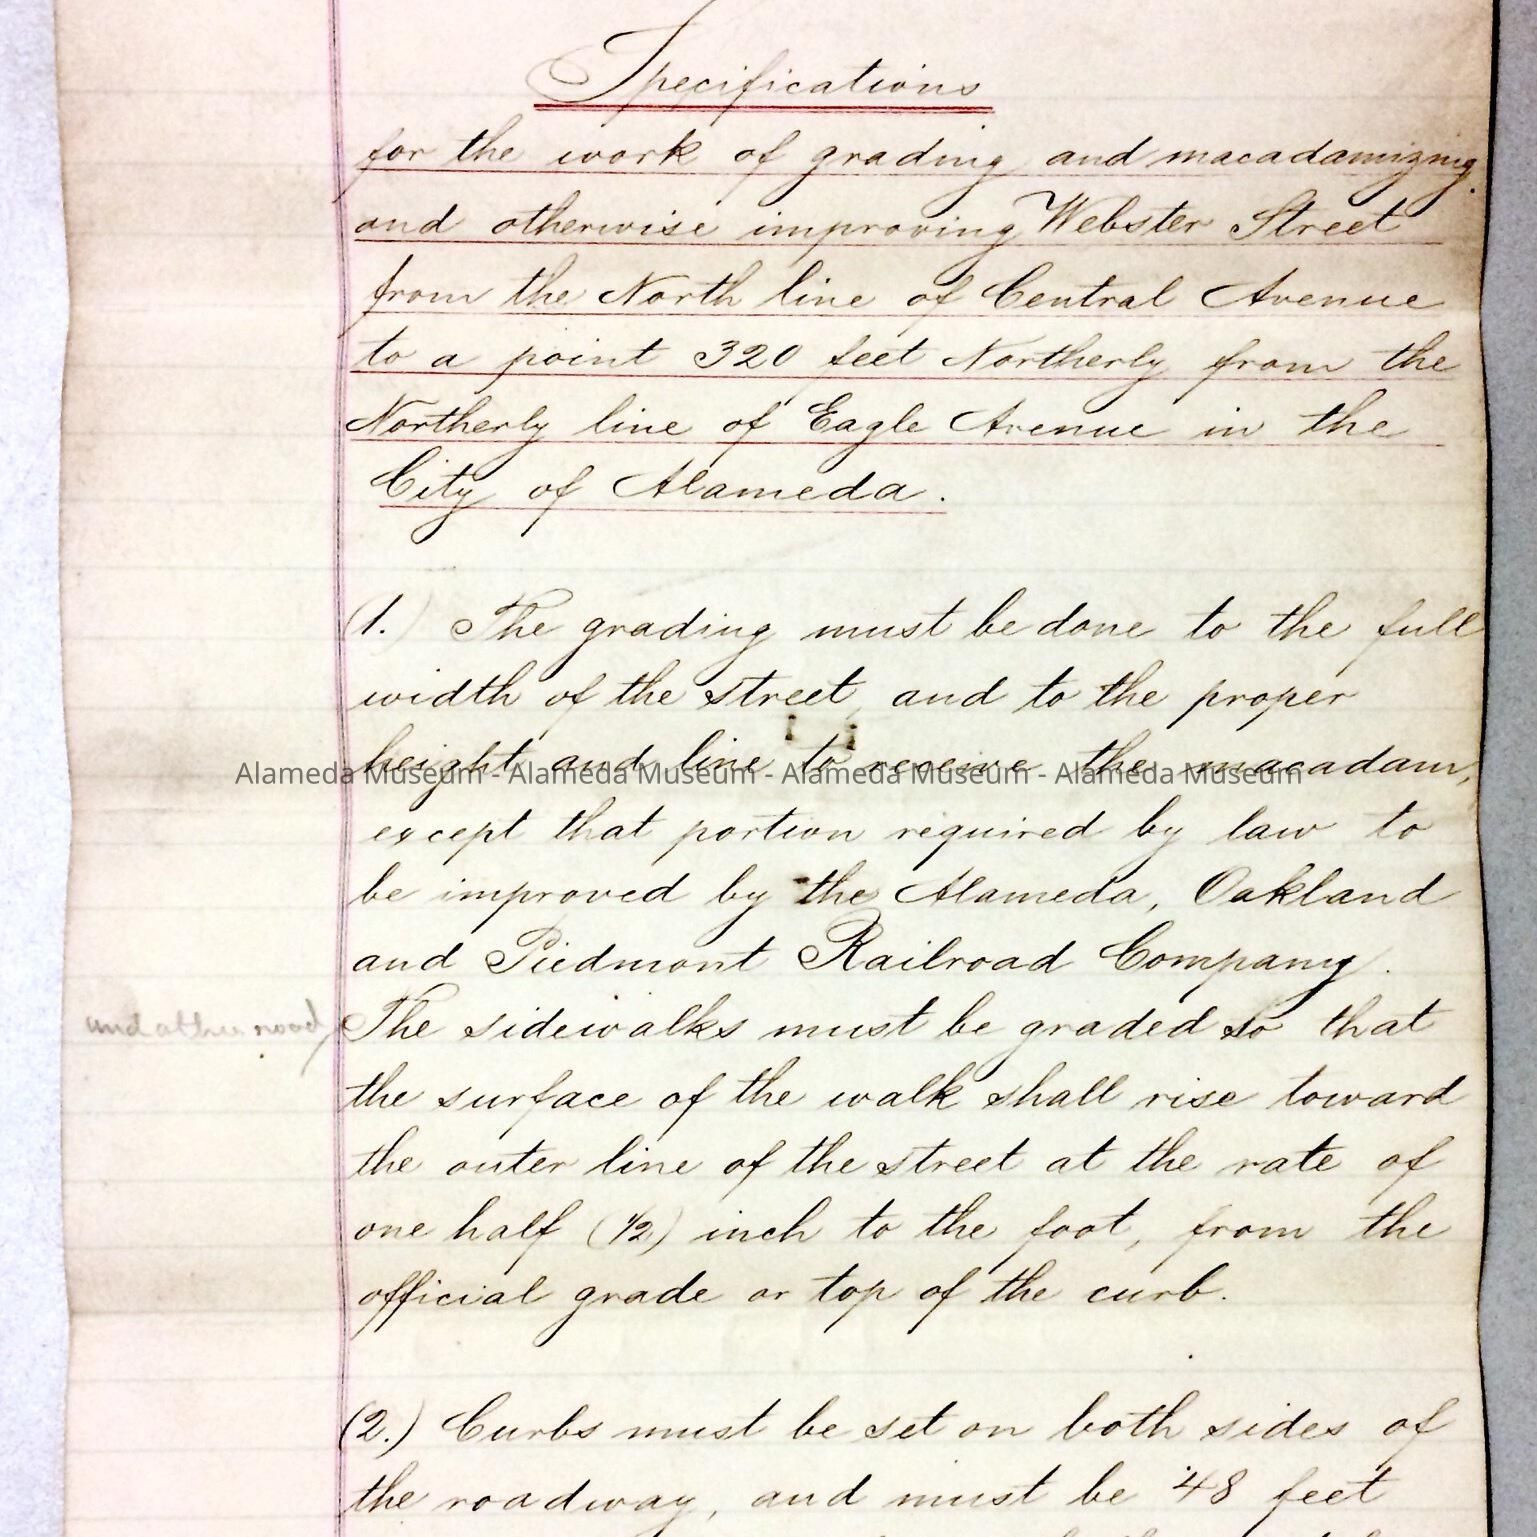 Specifications
for the work of grading and macadamizing
and otherwise improving Webster Street
from the North line of Central Avenue
to a point 320 feet Northerly from the
Northerly line of Eagle Avenue in the
City of Alameda.
(1.) The grading must be done to the full
width of the street, and to the proper
height and line to receive the macadam,
Alameda Museum - Alameda Museum - Alameda Museum - Alameda Museum
except that portion required by law to
be improved by the Alameda, Oakland
and Piedmont Railroad Company.
and other road
The sidewalks must be graded so that
the surface of the walk shall rise toward
the outer line of the street at the rate of
one half (1/2) inch to the foot, from the
official grade or top of the curb.
(2.) Curbs must be set on both sides of
the roadway, and must be 48 feet